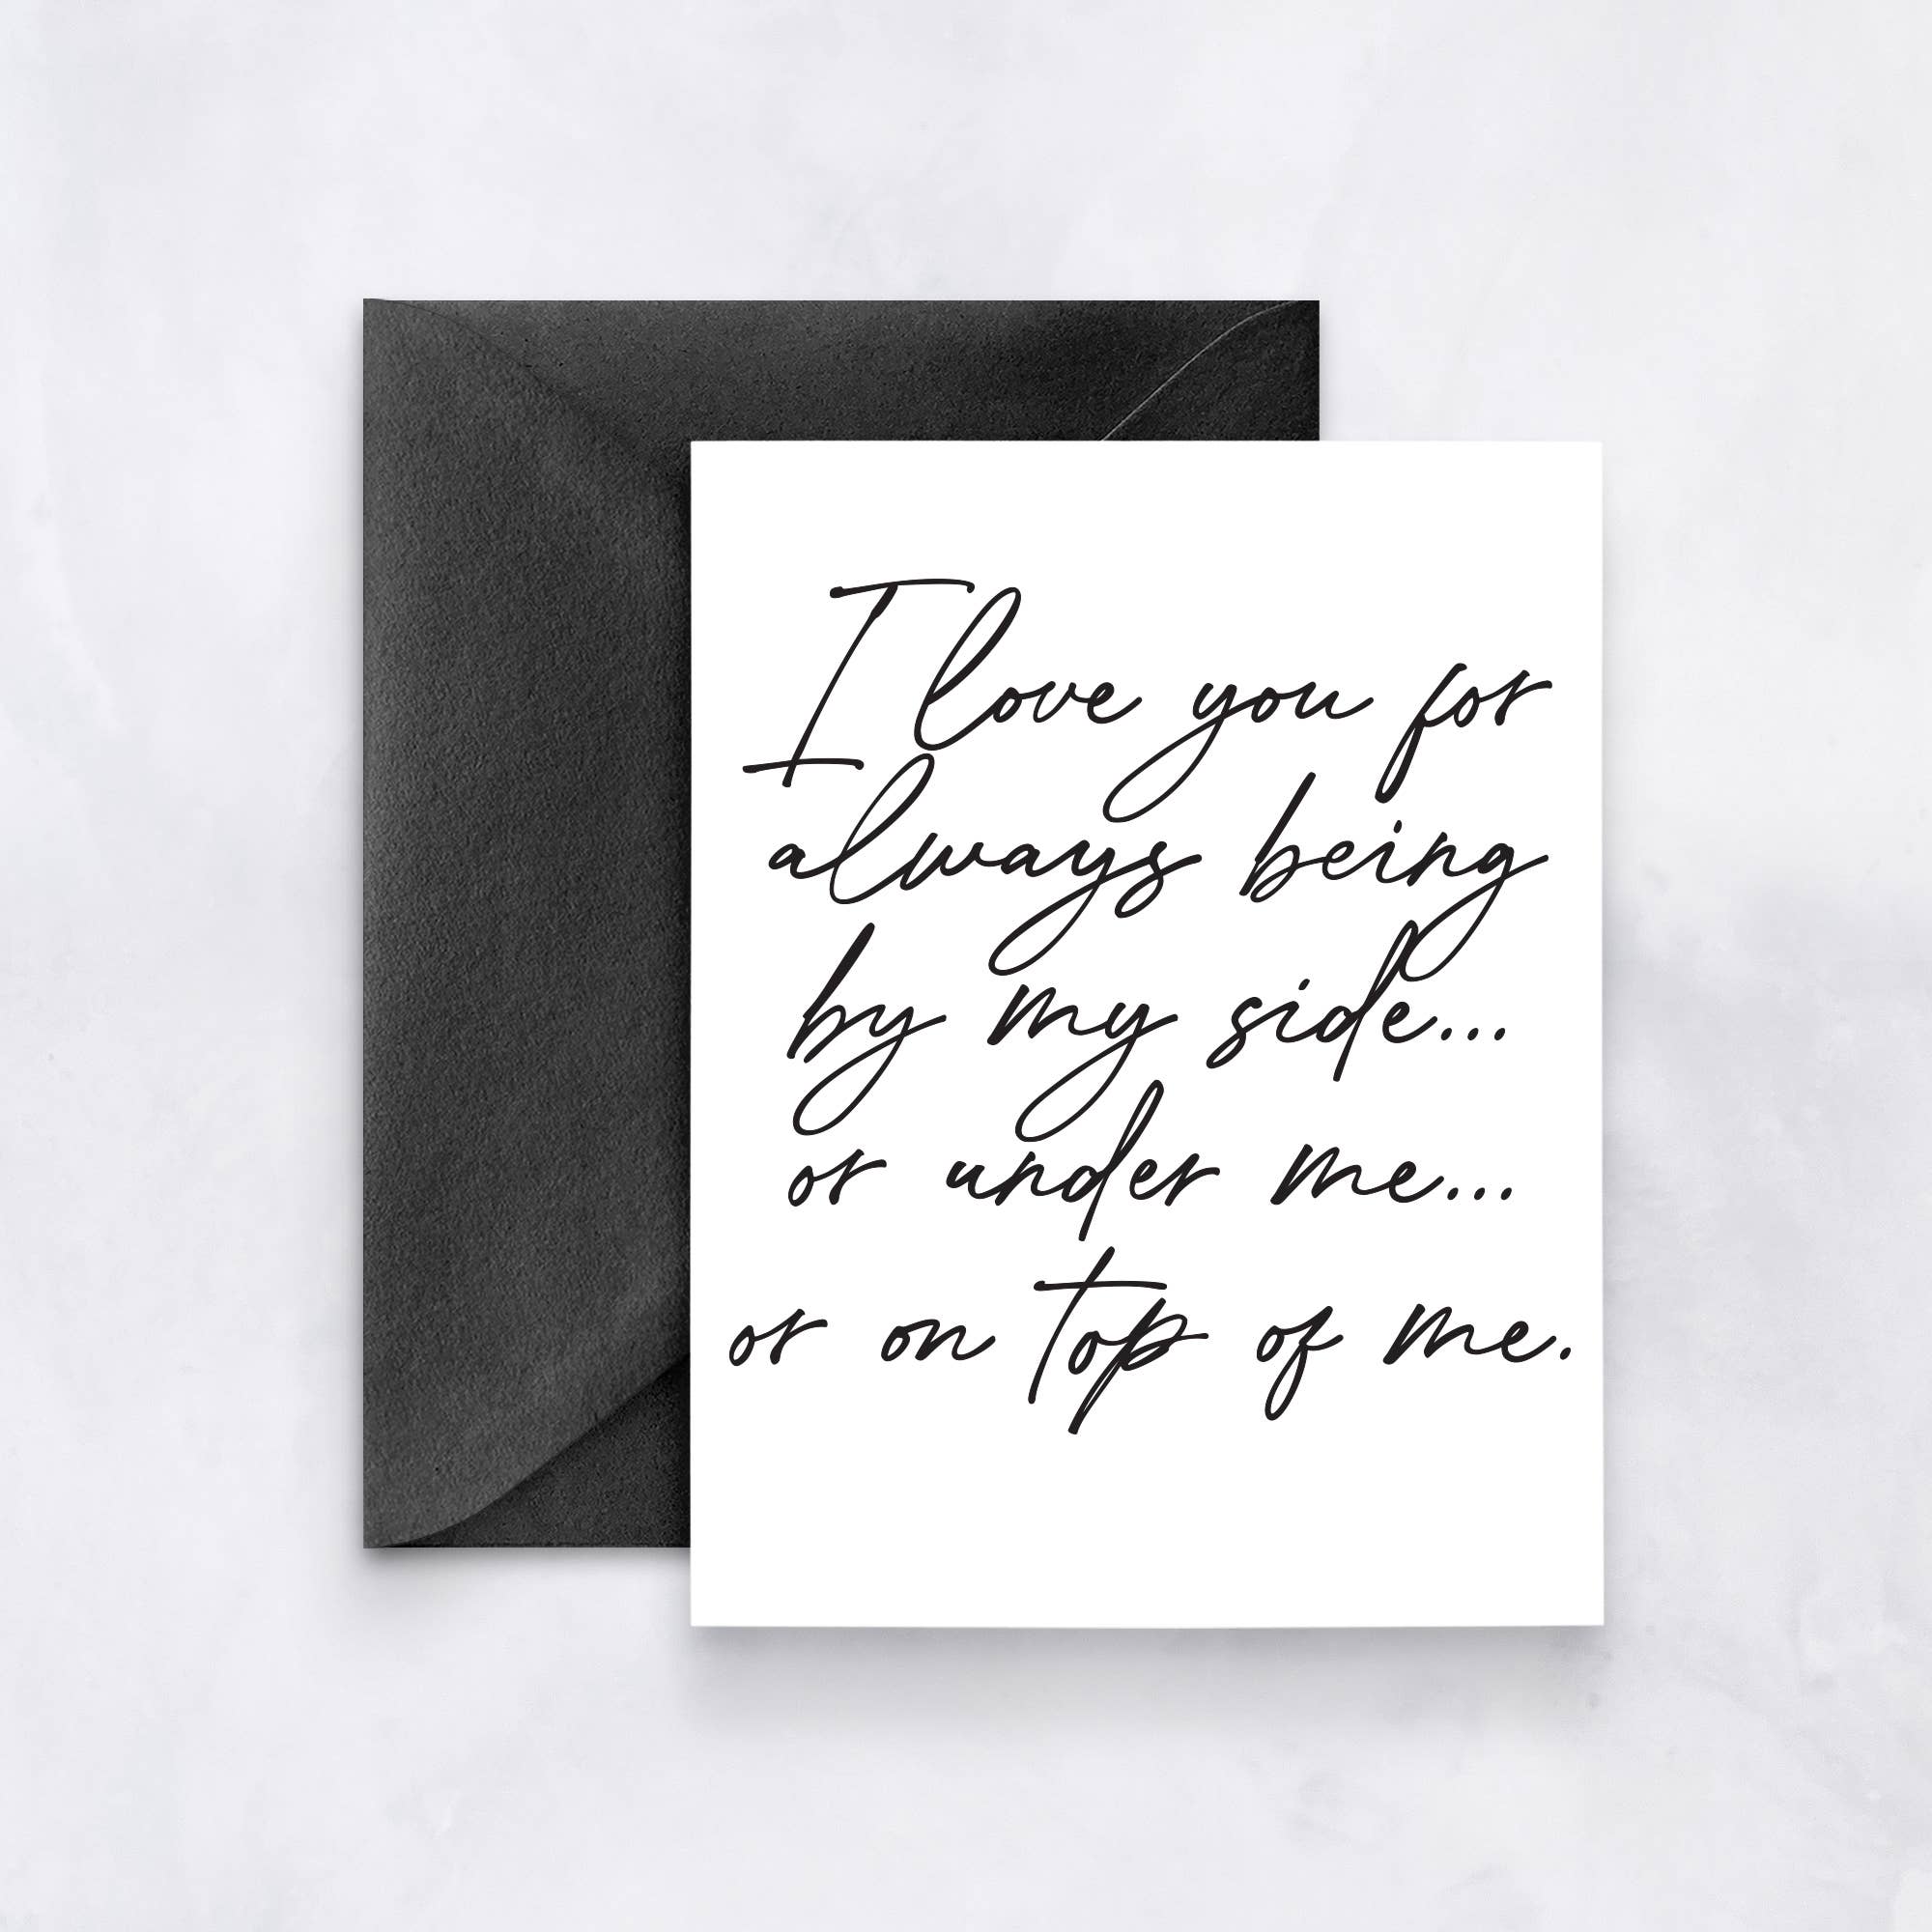 I love you for
always being
by my side...
or under me...
or on top of me.